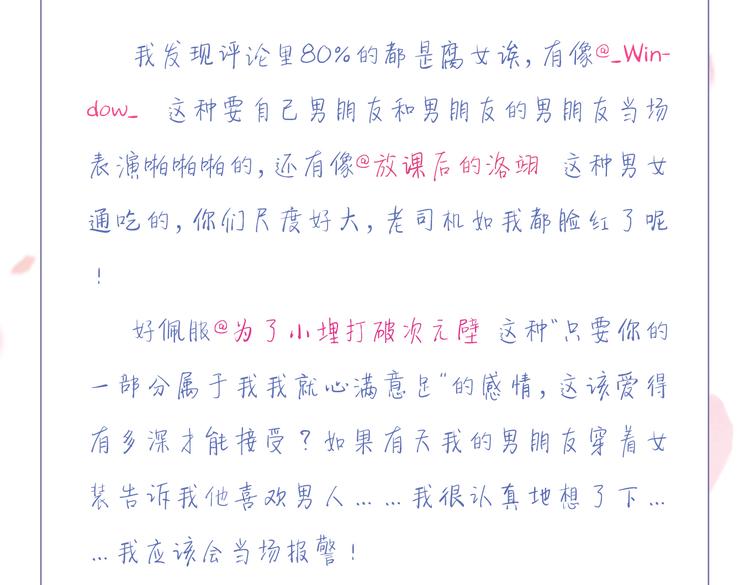 我发现评论里80%的都是腐女诶,有像@_Win-
dow_ 这种要自己男朋友和男朋友的男朋友当场
表演啪啪啪的,还有像@放课后的洛翊 这种男女
通吃的,你们尺度好大,老司机如我都脸红了呢
!
好佩服@为了小埋打破次元壁 这种"只要你的
一部分属于我我就心满意足"的感情,这该爱得
有多深才能接受?如果有天我的男朋友穿着女
装告诉我他喜欢男人……我很认真地想了下…
…我应该会当场报警!